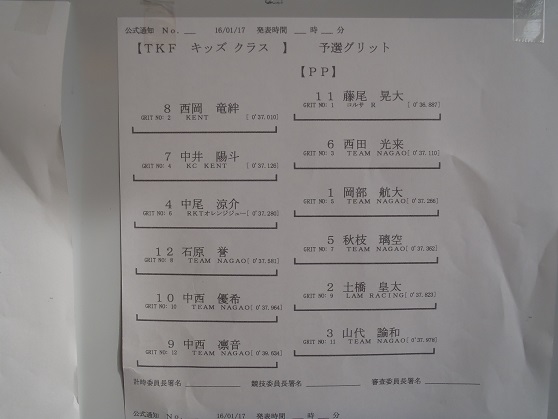 公式通知 No. __ 16/01/17 発表時間 __ 時 __ 分
【TKF キッズ クラス 】 予選グリット
【PP】
11 藤尾 晃大
GRIT NO: 1 コルサ R [ 0'36.887]
8 西岡 竜絆
GRIT NO: 2 KENT [ 0'37.010]
6 西田 光来
GRIT NO: 3 TEAM NAGAO[ 0'37.110]
7 中井 陽斗
GRIT NO: 4 KC KENT [ 0'37.126]
1 岡部 航大
GRIT NO: 5 TEAM NAGAO[ 0'37.266]
4 中尾 涼介
GRIT NO: 6 RKTオレンジジュー[ 0'37.280]
5 秋枝 璃空
GRIT NO: 7 TEAM NAGAO[ 0'37.362]
12 石原 誉
GRIT NO: 8 TEAM NAGAO[ 0'37.581]
2 土橋 皇太
GRIT NO: 9 LAM RACING[ 0'37.623]
10 中西 優希
GRIT NO: 10 TEAM NAGAO[ 0'37.964]
3 山代 諭和
GRIT NO: 11 TEAM NAGAO[ 0'37.978]
9 中西 凛音
GRIT NO: 12 TEAM NAGAO[ 0'39.624]
計時委員長署名 競技委員長署名 審査委員長署名
公式通知 No. 16/01/17 発表時間 時 分